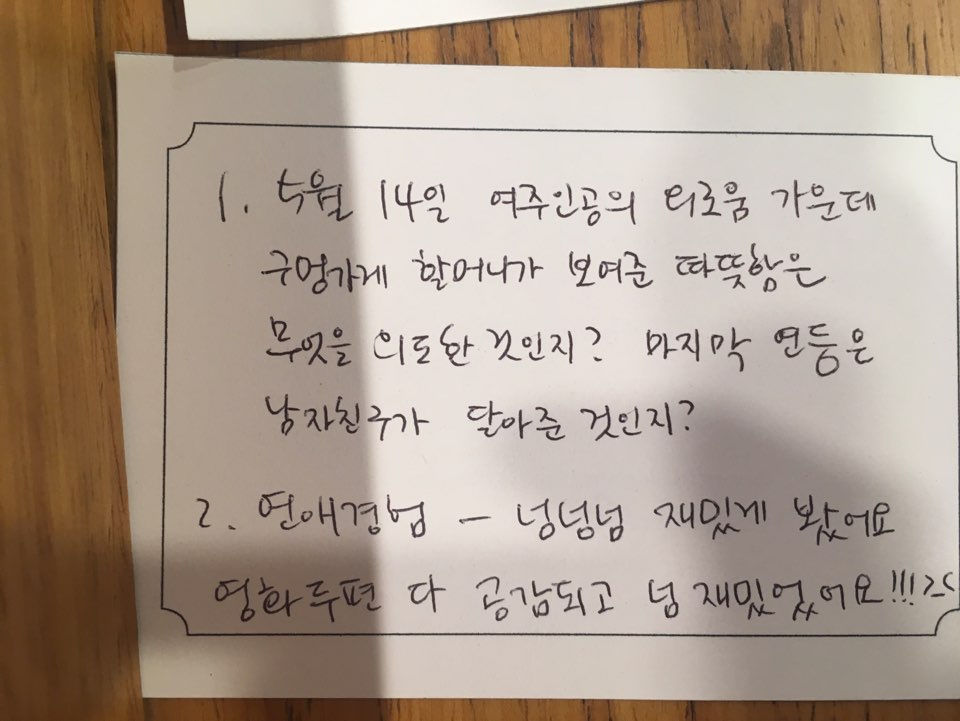 1. 수월 14일 여주인공의 외로움 가운데
구멍가게 할머니가 보여준 따뜻함은
무엇을 의도한 것인지? 마지막 연등은
남자친구가 달아준 것인지?
2. 연애경험 - 넝넘넘 재밌게 봤어요
영화두편 다 공감되고 넘 재밌었어요!!!